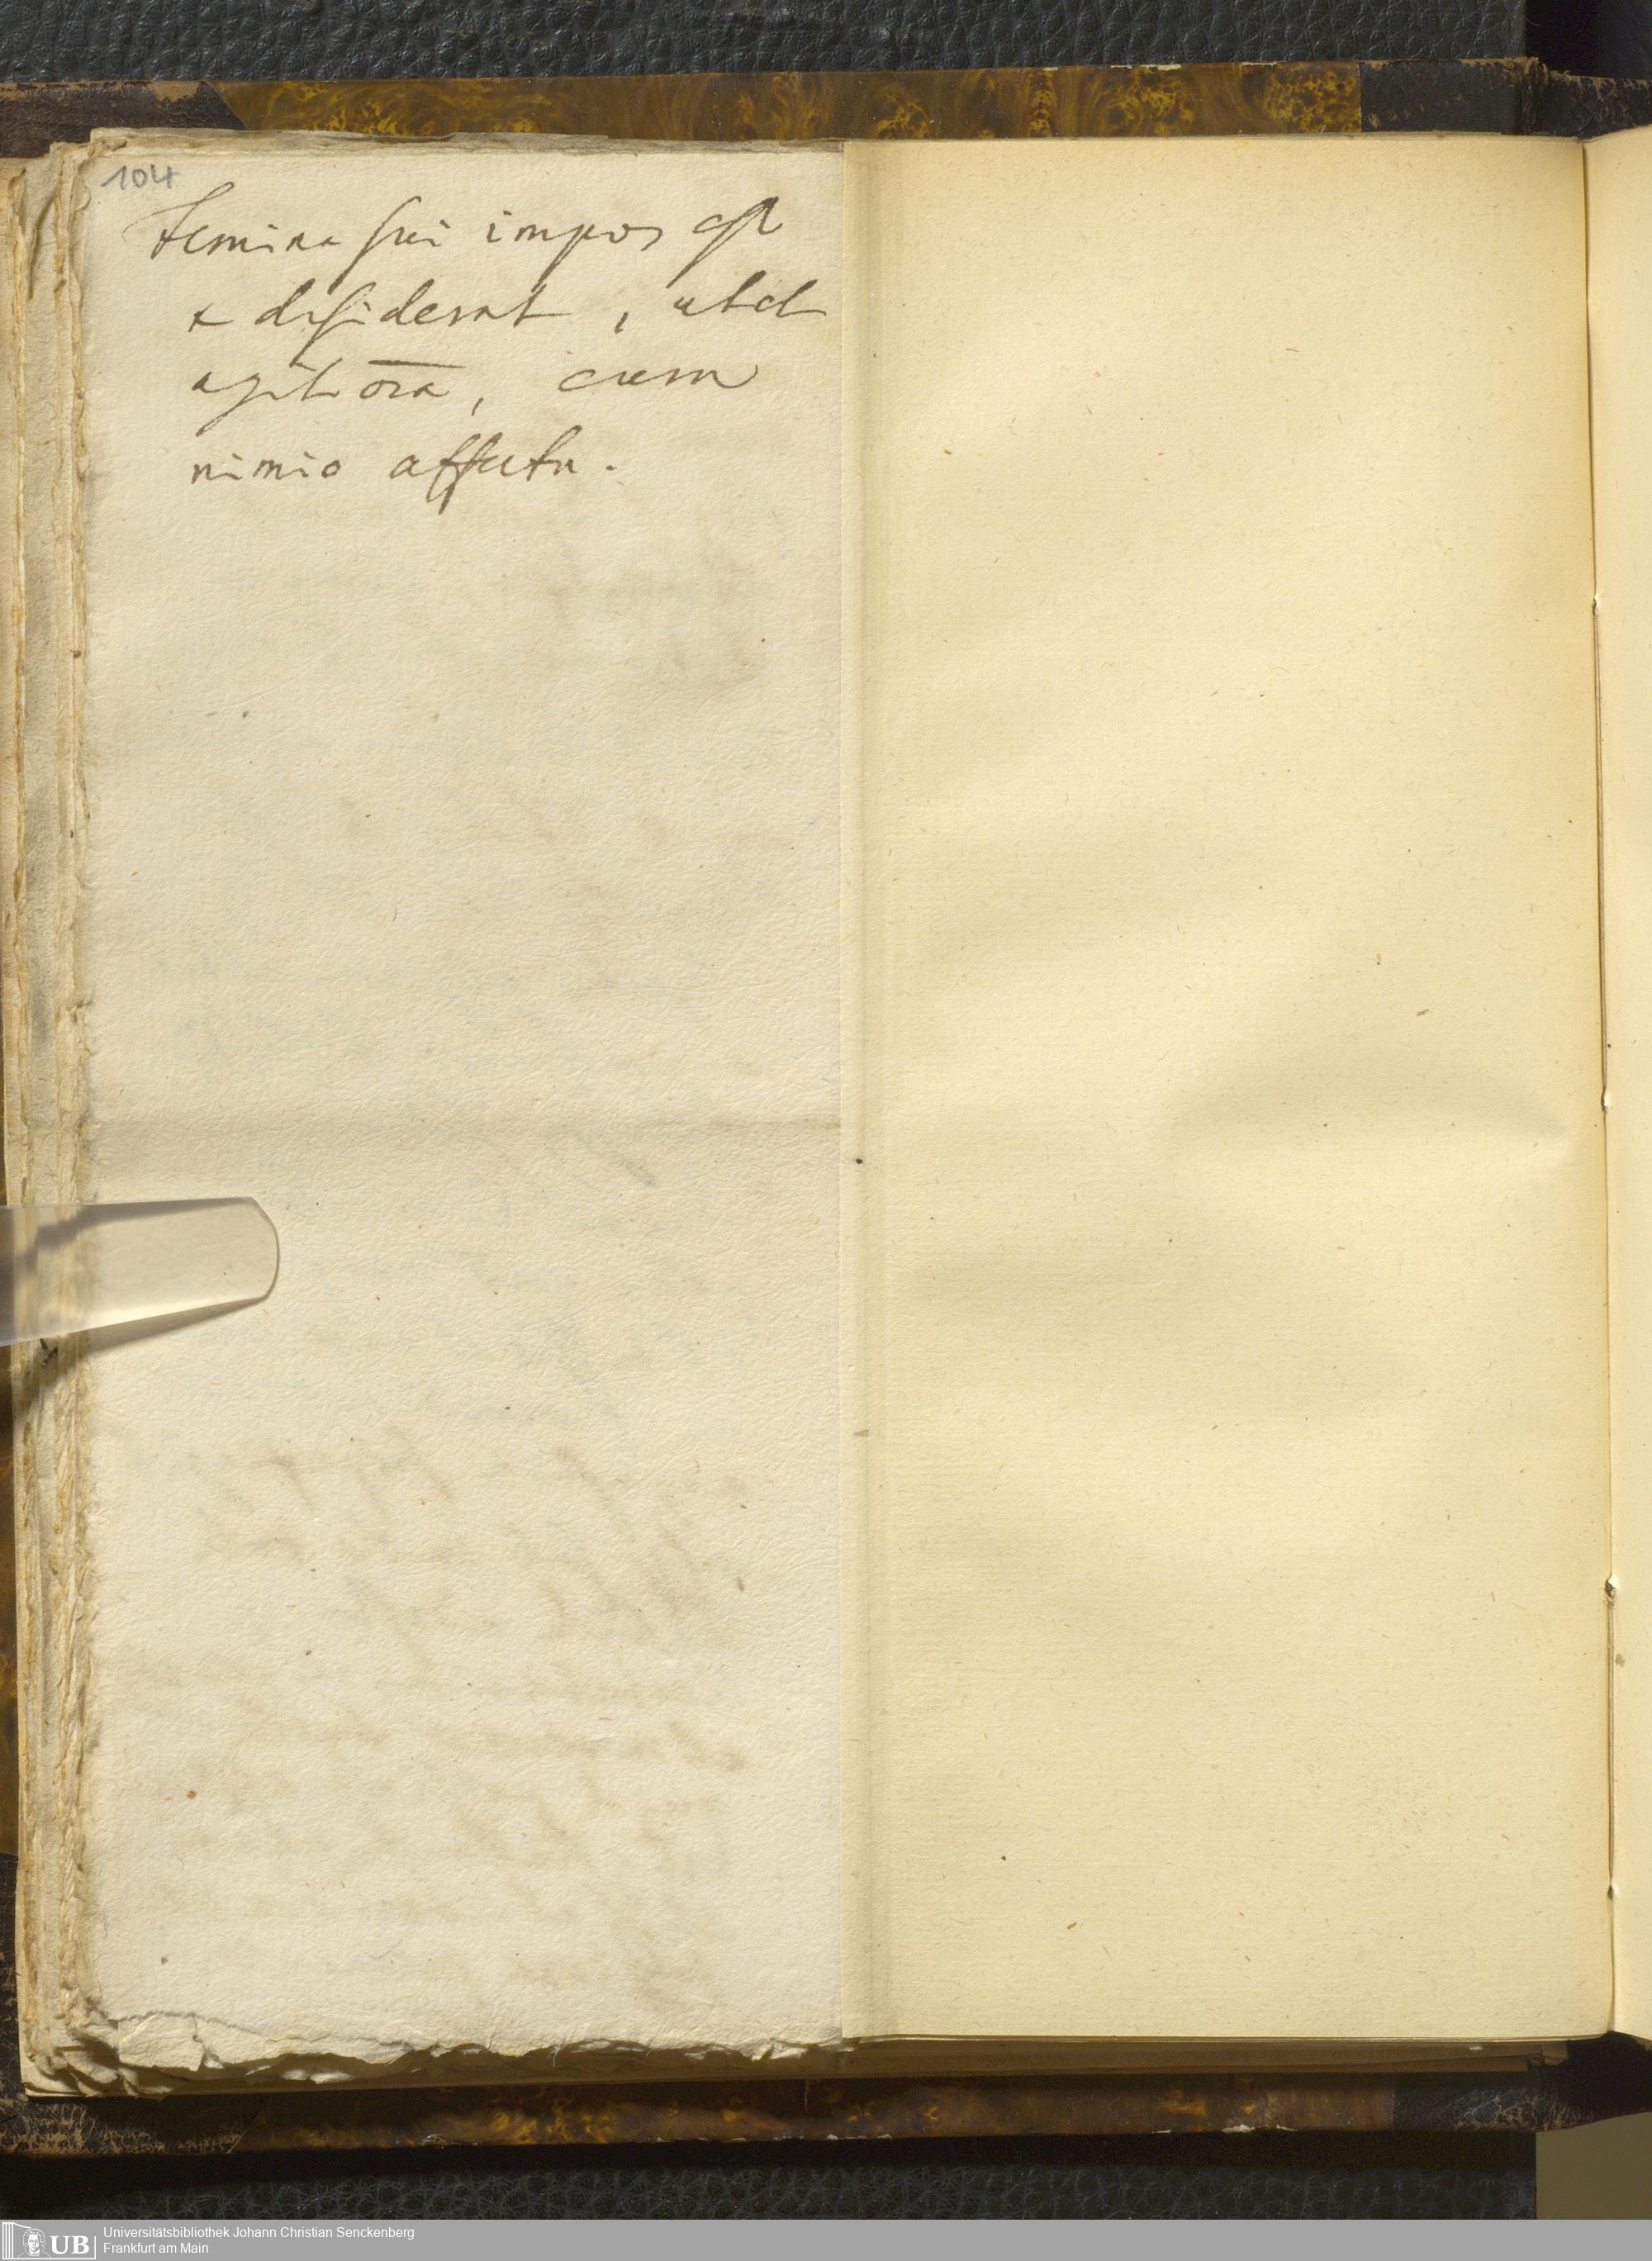 104
Femina sui impos est
& desiderat, ut et
agit o͞ia, cum
nimio affectu.
UB Universitätsbibliothek Johann Christian Senckenberg
Frankfurt am Main